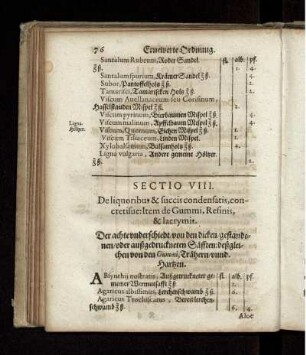 76 Ernewerte Ordnung.
Santalum Rubeum, Roter Sandel fl. alb. pf.
ʒß. 4.
Santalum spurium, Krämer Sandel ʒß. 4.
Suber, Pantoffelholz ʒß. 2.
Tamarisci, Tamariscken Holz ʒß. 1.
Viscum Auellanaceum seu Corulinum,
Haselstauden Mispel ʒß. 2.
Viscum pyrinum, Bierbäumen Mispel ʒß.
Viscum malinum, Apffelbäum Mispel ʒß.
Viscum Quercinum, Eichen Mispel ʒß.
Viscum Tiliaceum, Linden Mispel.
Xylobalsamum, Balsamholz ʒß. 4.
Ligna vulgaria, Andere gemeine Hölzer
ʒß.
Ligna.
Höltzer.
SECTIO VIII.
De liquoribus & succis condensatis, con-
cretisue: Item de Gummi, Resinis,
& lacrymis.
Der achte vnderschiedt, von den dicken, gestande-
nen, oder außgedruckneten Säfften: deßglei-
chen von den Gummi, Trähern, vnnd
Hartzen.
fl. alb. pf.
Absynthij nostratis, Außgetruckneter ge-
meiner Wermutsafft ʒß. 4.
Agaricus albissimus, Lerchenschwamb ʒß. 4.
Agaricus Trochiscatus, Bereit lerchen-
schwamb ʒß. 2.
Aloë